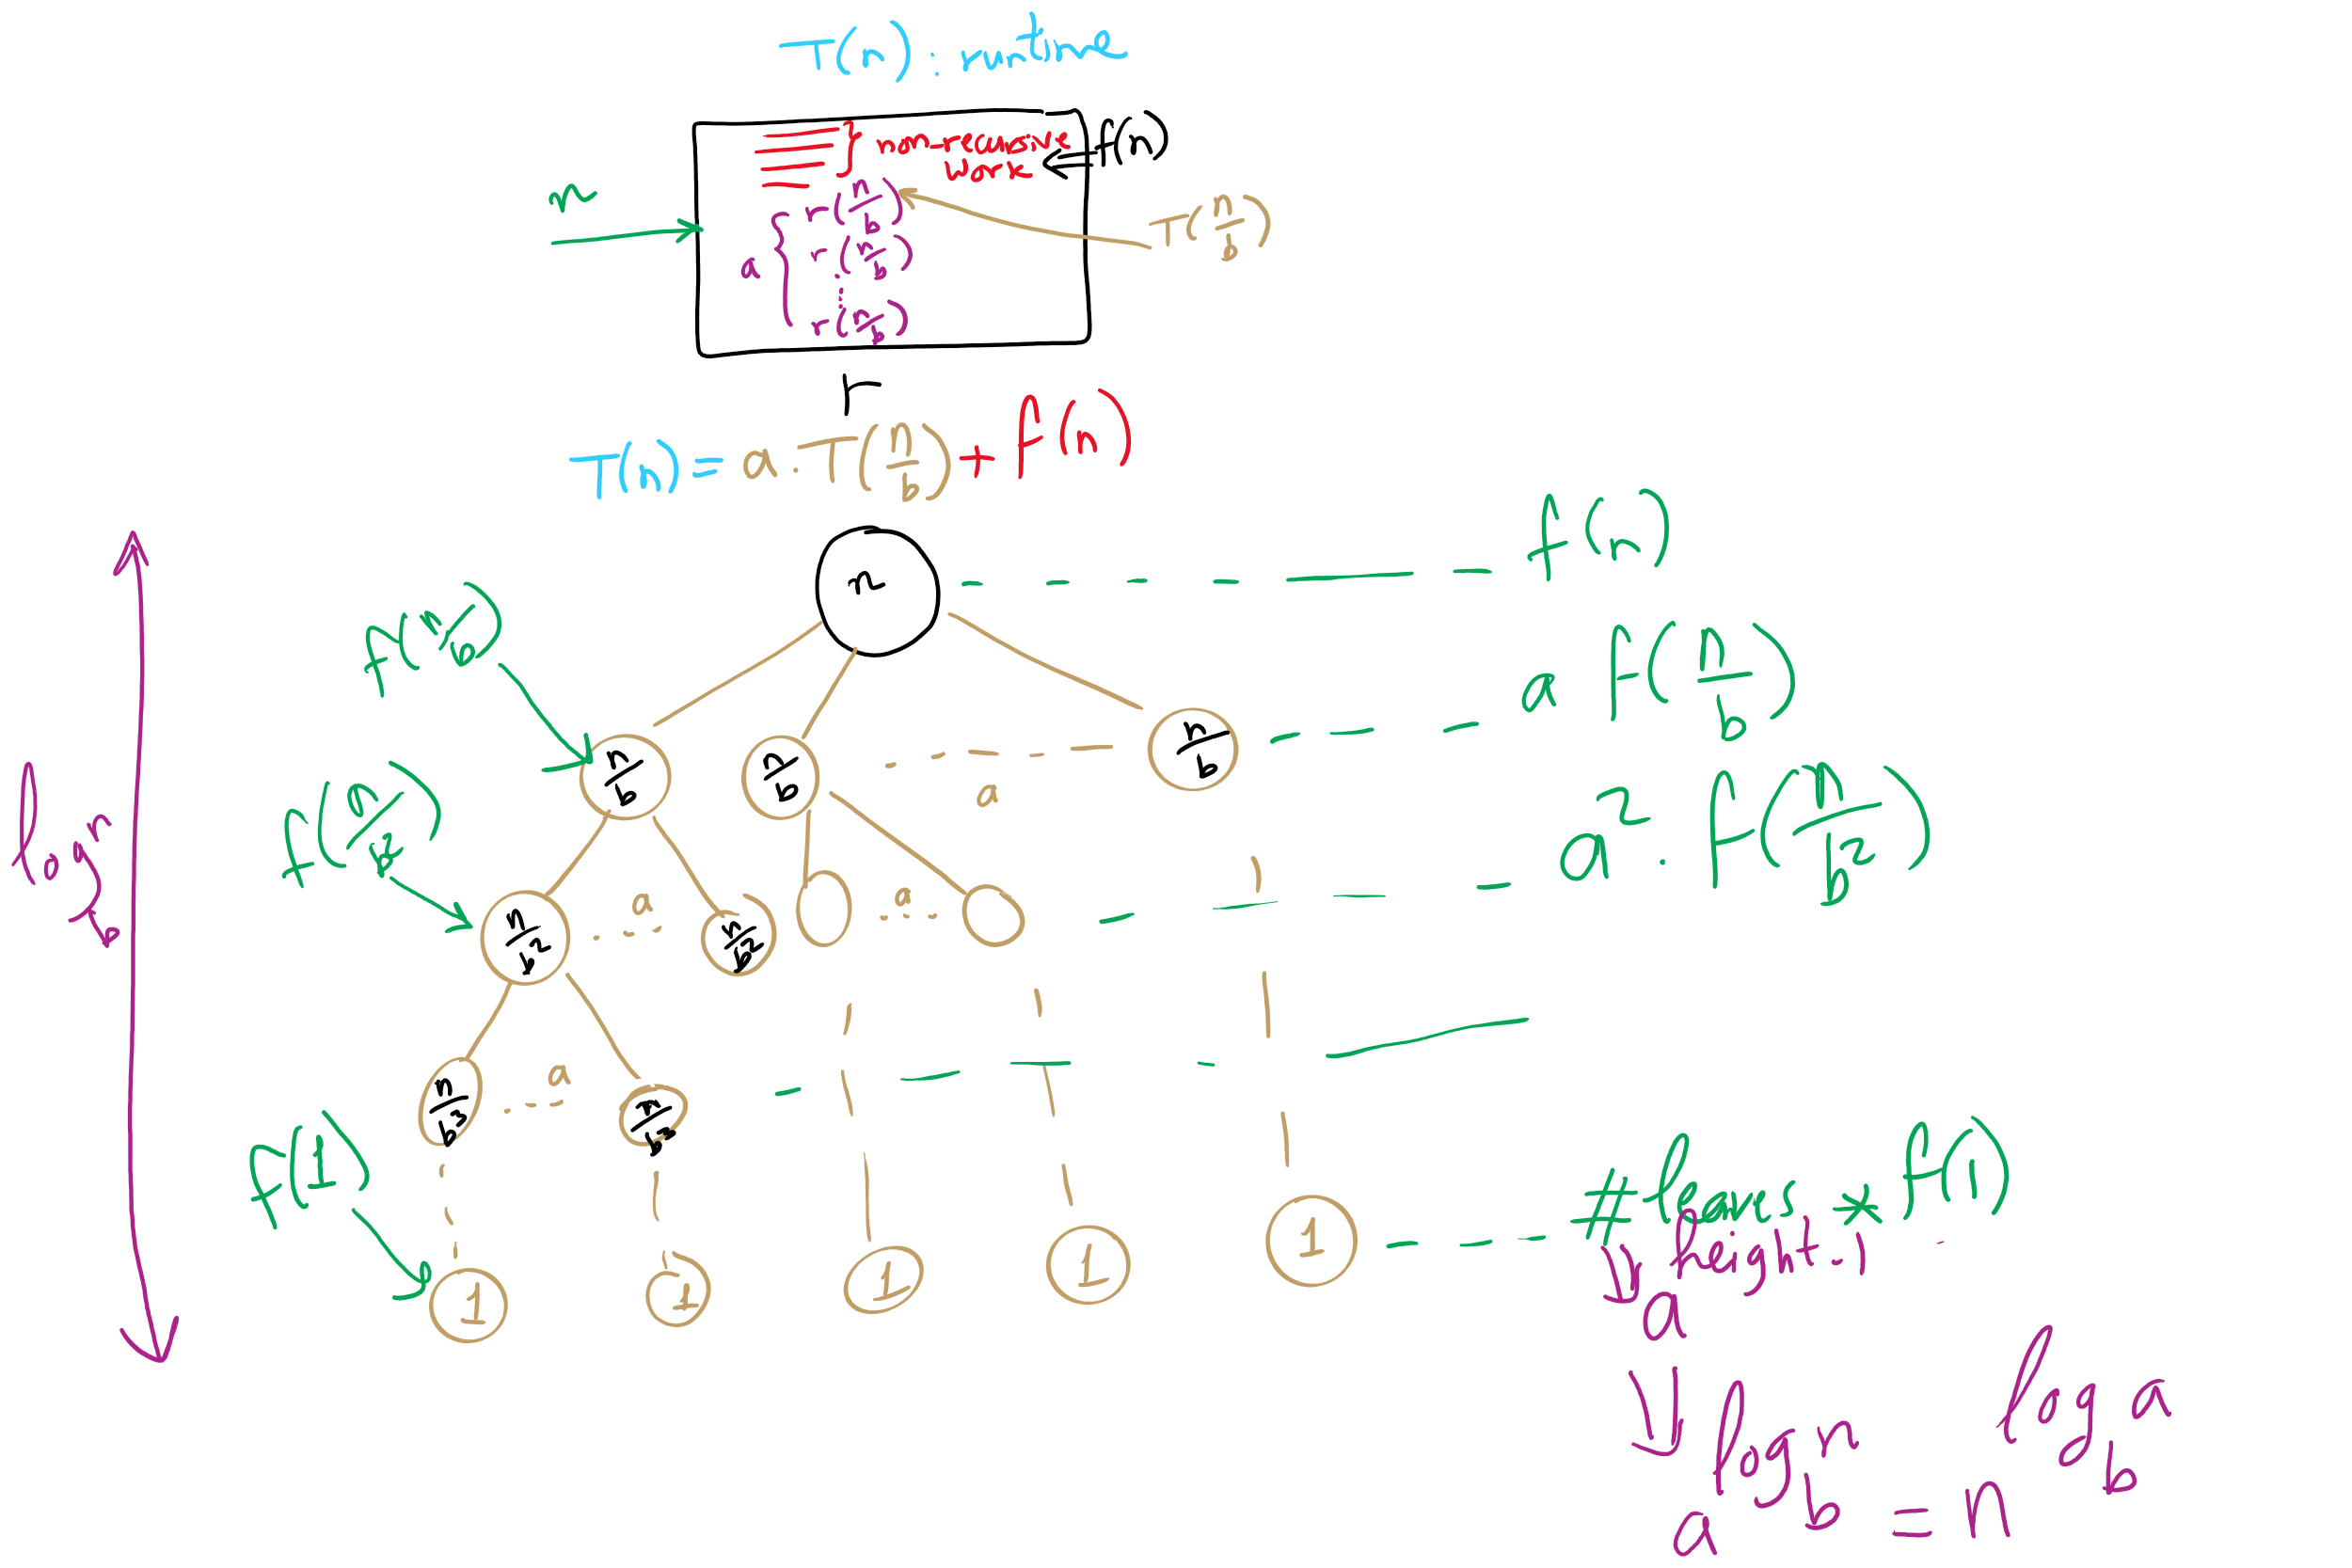 T(n) : runtime
non-recursive
work
f(n)
n
r(n/b)
T(n/b)
a
r(n/b)
⋮
r(n/b)
r
T(n) = a · T(n/b) + f(n)
n
f(n)
f(n/b)
n/b
n/b
a
n/b
a f(n/b)
f(n/b²)
n/b²
a
n/b²
a
a² · f(n/b²)
log_b n
n/b³
a
n/b³
f(1)
1
1
1
1
1
#leaves * f(1)
a^height
a^(log_b n) = n^(log_b a)